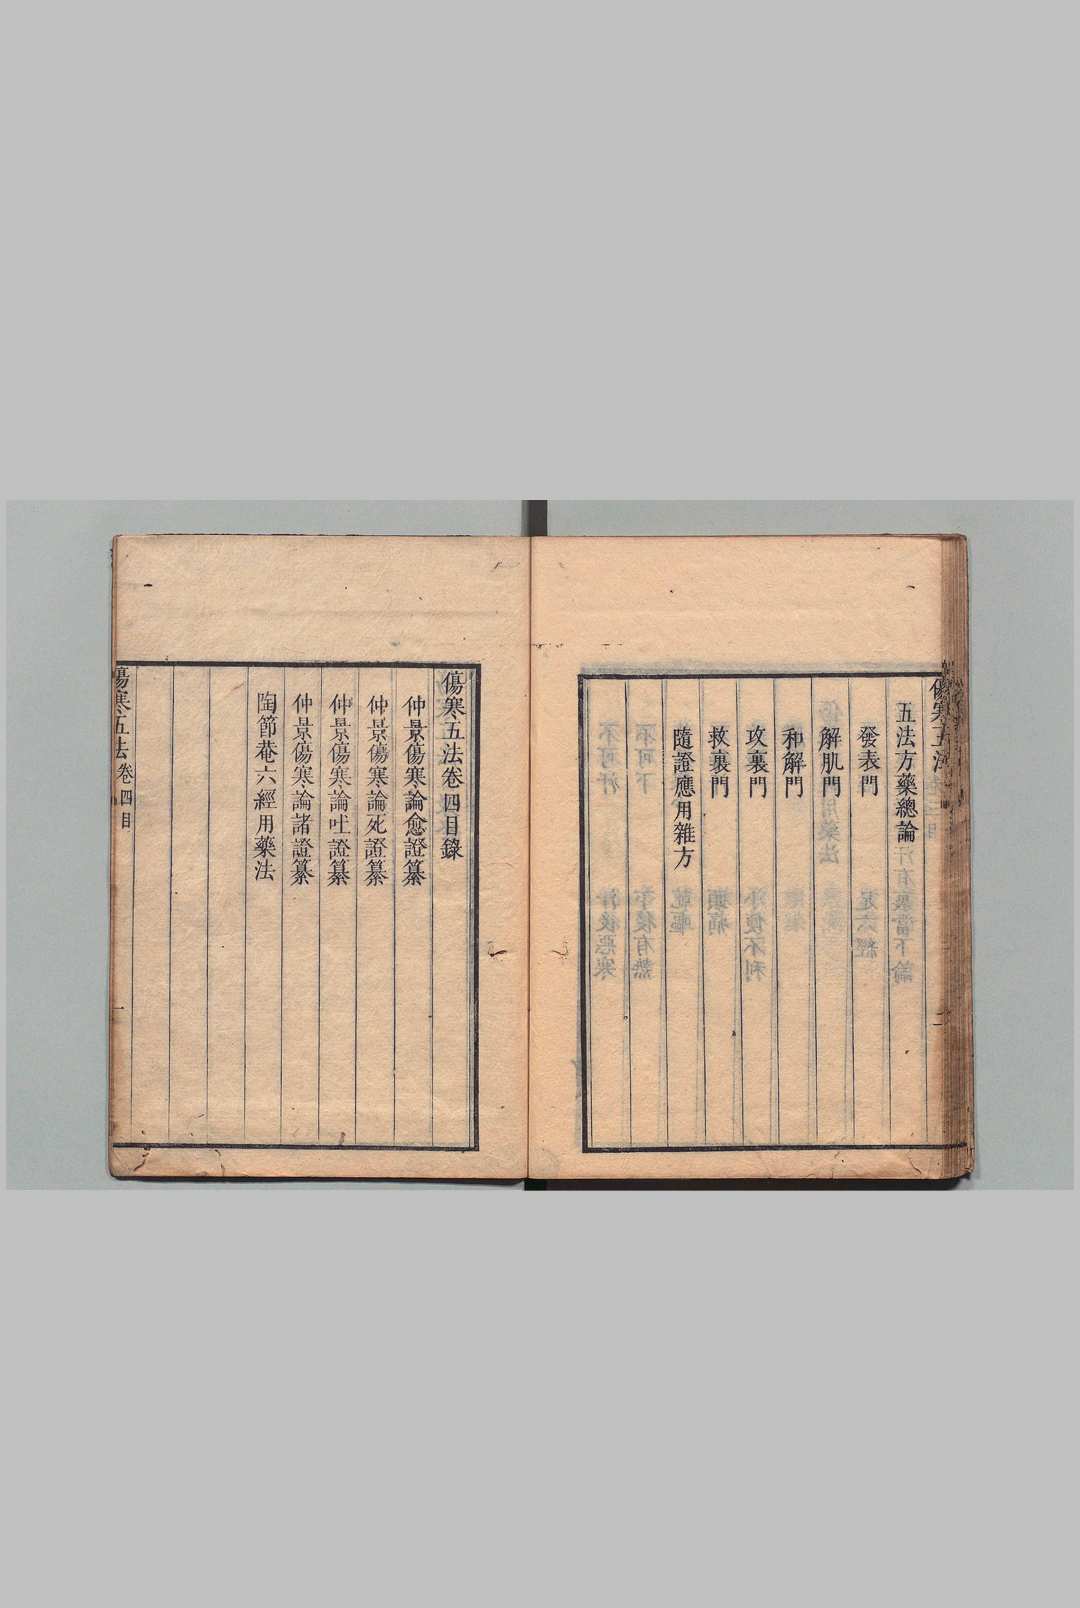 傷寒五法
五法方藥總論
發表門
解肌門
和解門
攻裏門
救裏門
隨證應用雜方
傷寒五法卷四目錄
仲景傷寒論愈證纂
仲景傷寒論死證纂
仲景傷寒論吐證纂
仲景傷寒論諸證纂
陶節菴六經用藥法
傷寒五法卷四目
一